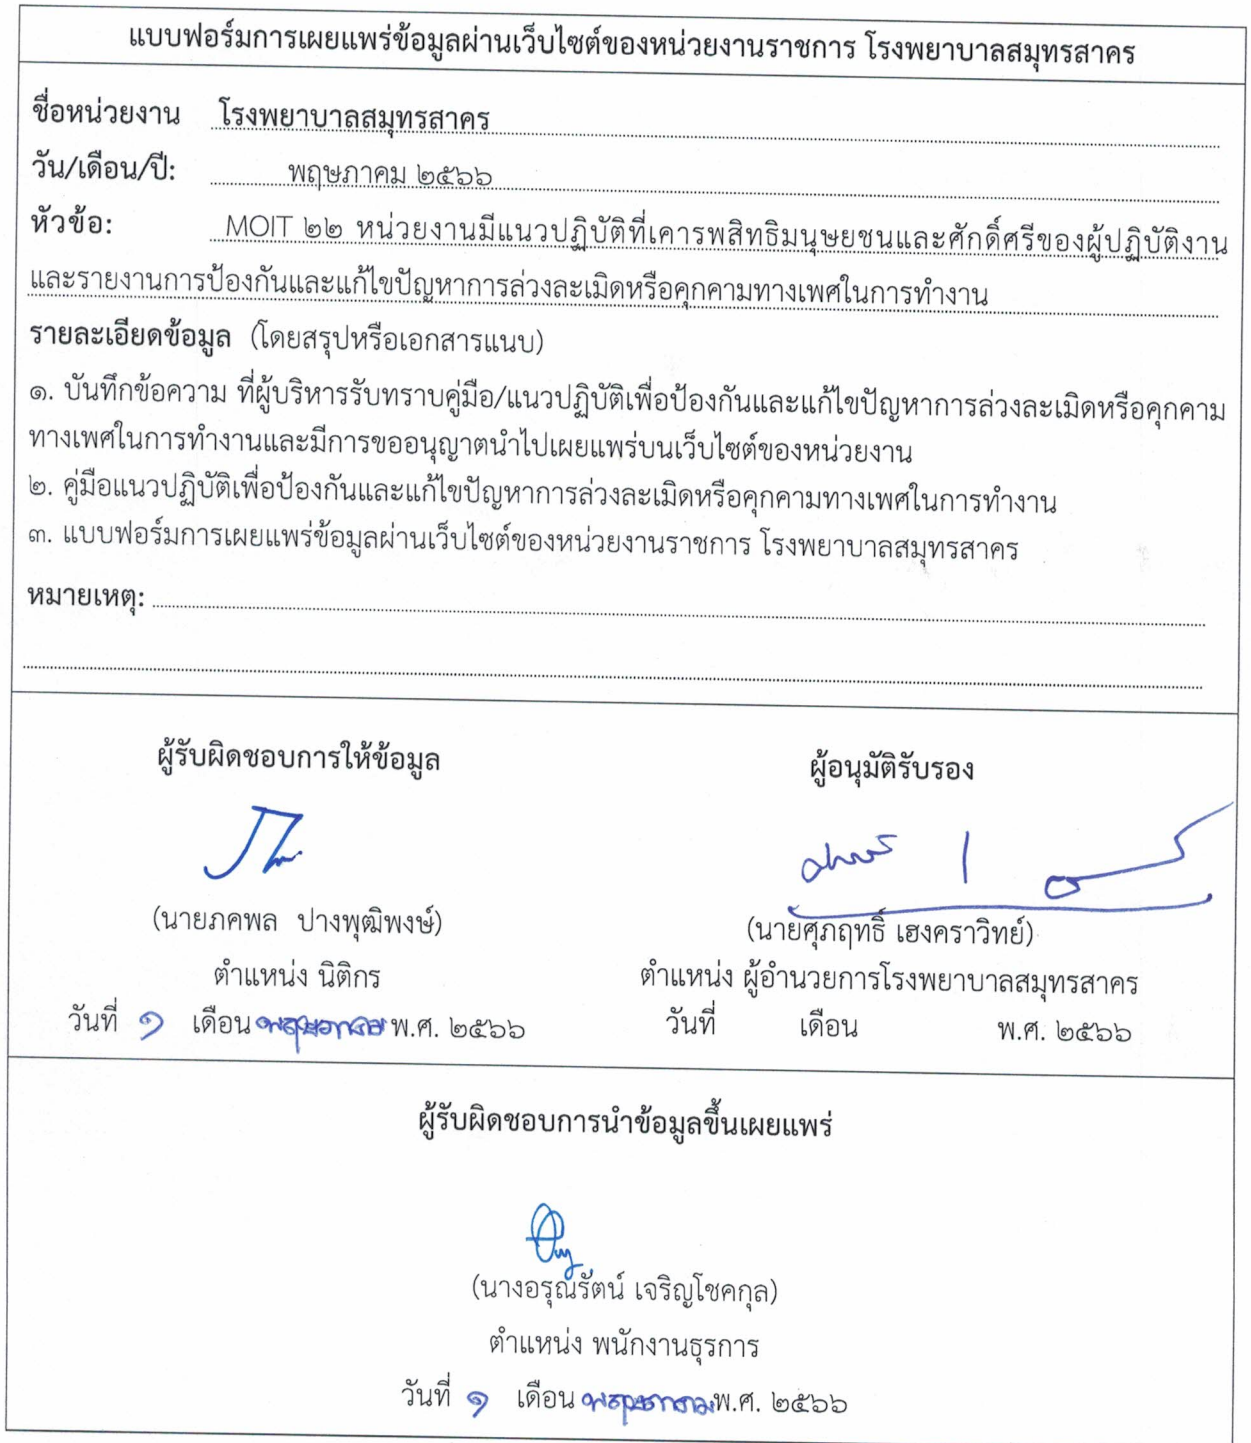 แบบฟอร์มการเผยแพร่ข้อมูลผ่านเว็บไซต์ของหน่วยงานราชการ โรงพยาบาลสมุทรสาคร
ชื่อหน่วยงาน โรงพยาบาลสมุทรสาคร
วัน/เดือน/ปี: พฤษภาคม ๒๕๖๖
หัวข้อ: MOIT ๒๒ หน่วยงานมีแนวปฏิบัติที่เคารพสิทธิมนุษยชนและศักดิ์ศรีของผู้ปฏิบัติงาน
และรายงานการป้องกันและแก้ไขปัญหาการล่วงละเมิดหรือคุกคามทางเพศในการทำงาน
รายละเอียดข้อมูล (โดยสรุปหรือเอกสารแนบ)
๑. บันทึกข้อความ ที่ผู้บริหารรับทราบคู่มือ/แนวปฏิบัติเพื่อป้องกันและแก้ไขปัญหาการล่วงละเมิดหรือคุกคาม
ทางเพศในการทำงานและมีการขออนุญาตนำไปเผยแพร่บนเว็บไซต์ของหน่วยงาน
๒. คู่มือแนวปฏิบัติเพื่อป้องกันและแก้ไขปัญหาการล่วงละเมิดหรือคุกคามทางเพศในการทำงาน
๓. แบบฟอร์มการเผยแพร่ข้อมูลผ่านเว็บไซต์ของหน่วยงานราชการ โรงพยาบาลสมุทรสาคร
หมายเหตุ:
ผู้รับผิดชอบการให้ข้อมูล ผู้อนุมัติรับรอง
(นายภคพล ปางพุฒิพงษ์) (นายศุภฤทธิ์ เฮงคราวิทย์)
ตำแหน่ง นิติกร ตำแหน่ง ผู้อำนวยการโรงพยาบาลสมุทรสาคร
วันที่ ๑ เดือน พฤษภาคม พ.ศ. ๒๕๖๖ วันที่ เดือน พ.ศ. ๒๕๖๖
ผู้รับผิดชอบการนำข้อมูลขึ้นเผยแพร่
(นางอรุณรัตน์ เจริญโชคกุล)
ตำแหน่ง พนักงานธุรการ
วันที่ ๑ เดือน พฤษภาคม พ.ศ. ๒๕๖๖